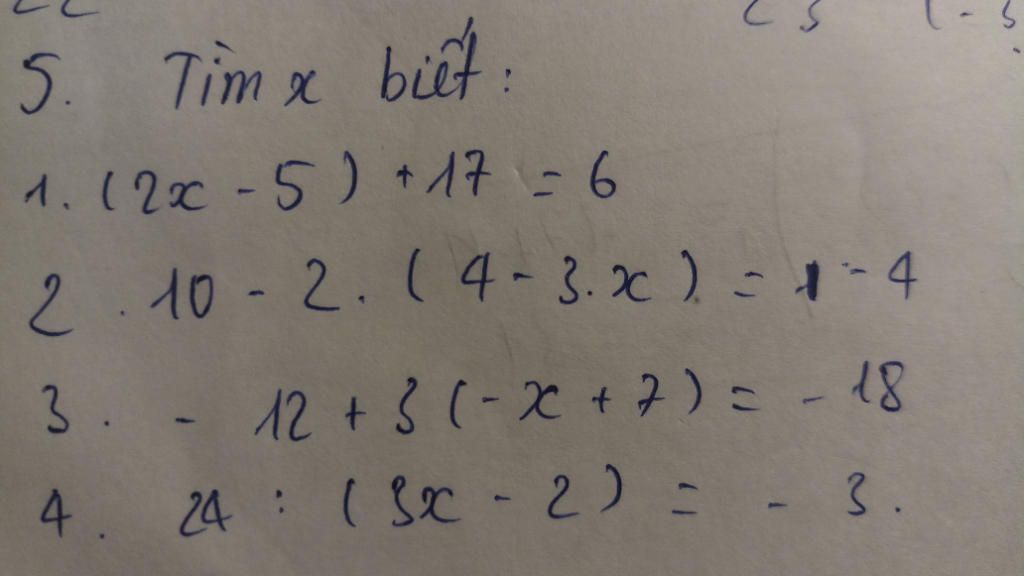 5. Tìm x biết:
1. (2x - 5) + 17 = 6
2. 10 - 2. (4 - 3.x) = - 4
3. - 12 + 3 (- x + 7) = - 18
4. 24 : (3x - 2) = - 3.